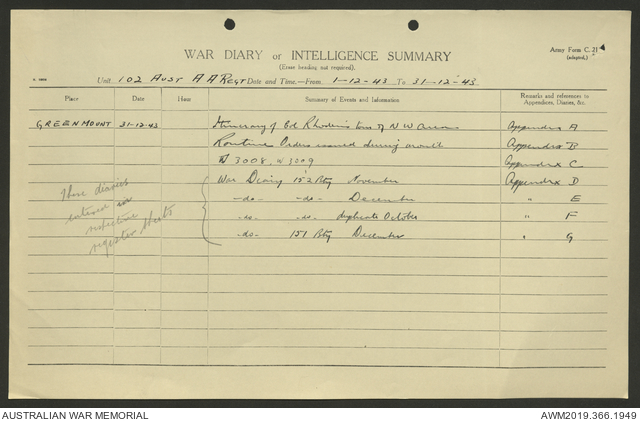 WAR DIARY or INTELLIGENCE SUMMARY
(Erase heading not required).
Army Form C. 21
(adapted.)
Unit 102 AUST A A REGT Date and Time.—From 1-12-43 To 31-12-43
Place Date Hour Summary of Events and Information Remarks and references to Appendices, Diaries, &c.
GREENMOUNT 31-12-43 Itinerary of Col Rhoden's tour of N W Area Appendix A
Routine Orders issued during month Appendix B
3008, 3009 Appendix C
War Diary 152 Bty November Appendix D
-do- -do- December " E
-do- -do- duplicate October " F
-do- 151 Bty December " G
These diaries
entered in
respective
register sheets
AUSTRALIAN WAR MEMORIAL AWM2019.366.1949